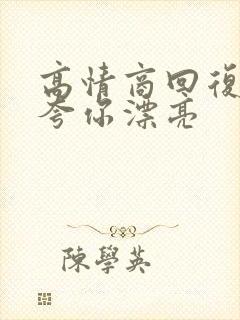 高情商回復
夸你漂亮
陳學英